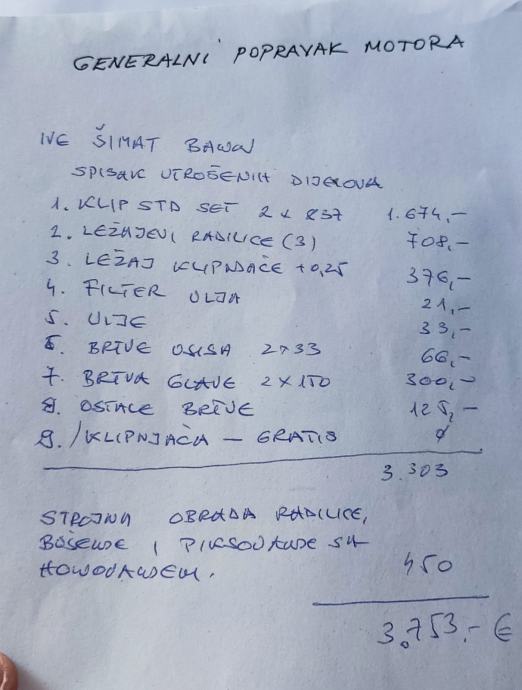 GENERALNI POPRAVAK MOTORA
IVE ŠIMAT
SPISAK UTROŠENIH DIJELOVA
1. KLIP STD SET 2 x 837 1.674,-
2. LEŽAJEVI RADILICE (3) 708,-
3. LEŽAJ KLIPNJAČE +0,25 376,-
4. FILTER ULJA 21,-
5. ULJE 33,-
6. BRTVE USISA 2x33 66,-
7. BRTVA GLAVE 2x150 300,-
8. OSTALE BRTVE 125,-
9. 1 KLIPNJAČA - GRATIS ø
3.303
STROJNA OBRADA RADILICE,
BUŠENJE I PIKSOVANJE SA
HONOVANJEM. 450
3.753,- €